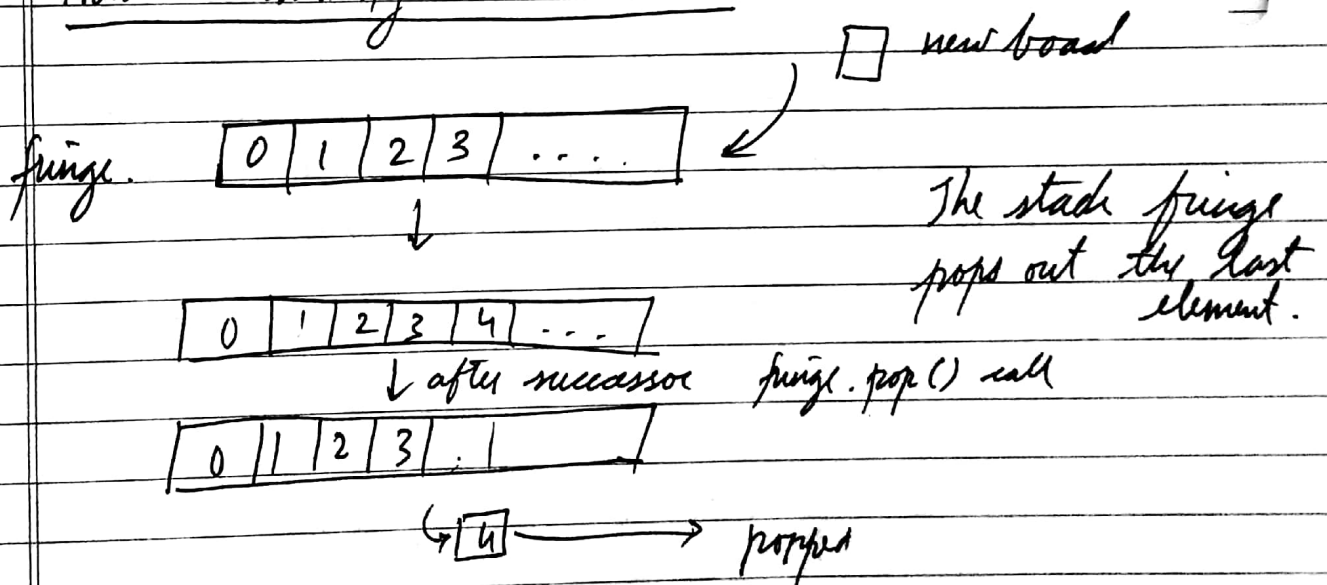 new board
fringe.
0 1 2 3 ....
The stack fringe
pops out the last
element.
0 1 2 3 4 ...
↓ after successor fringe.pop() call
0 1 2 3 .
4 → popped